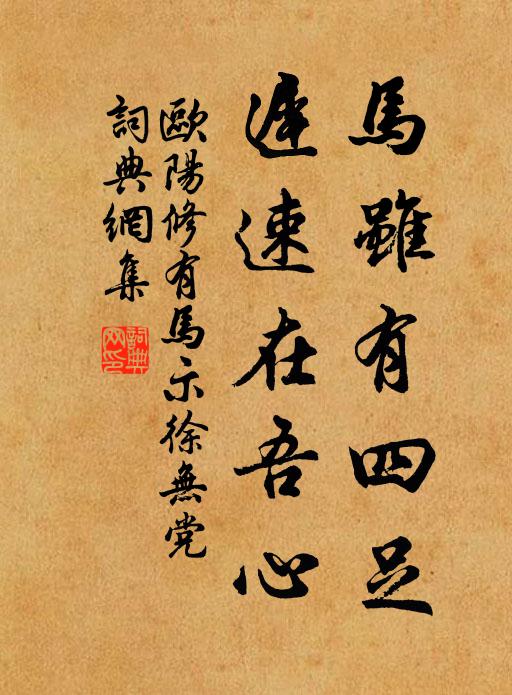 馬雖有四足
遲速在吾心
歐陽修有馬示徐無党
詞典網集
詞典
网印